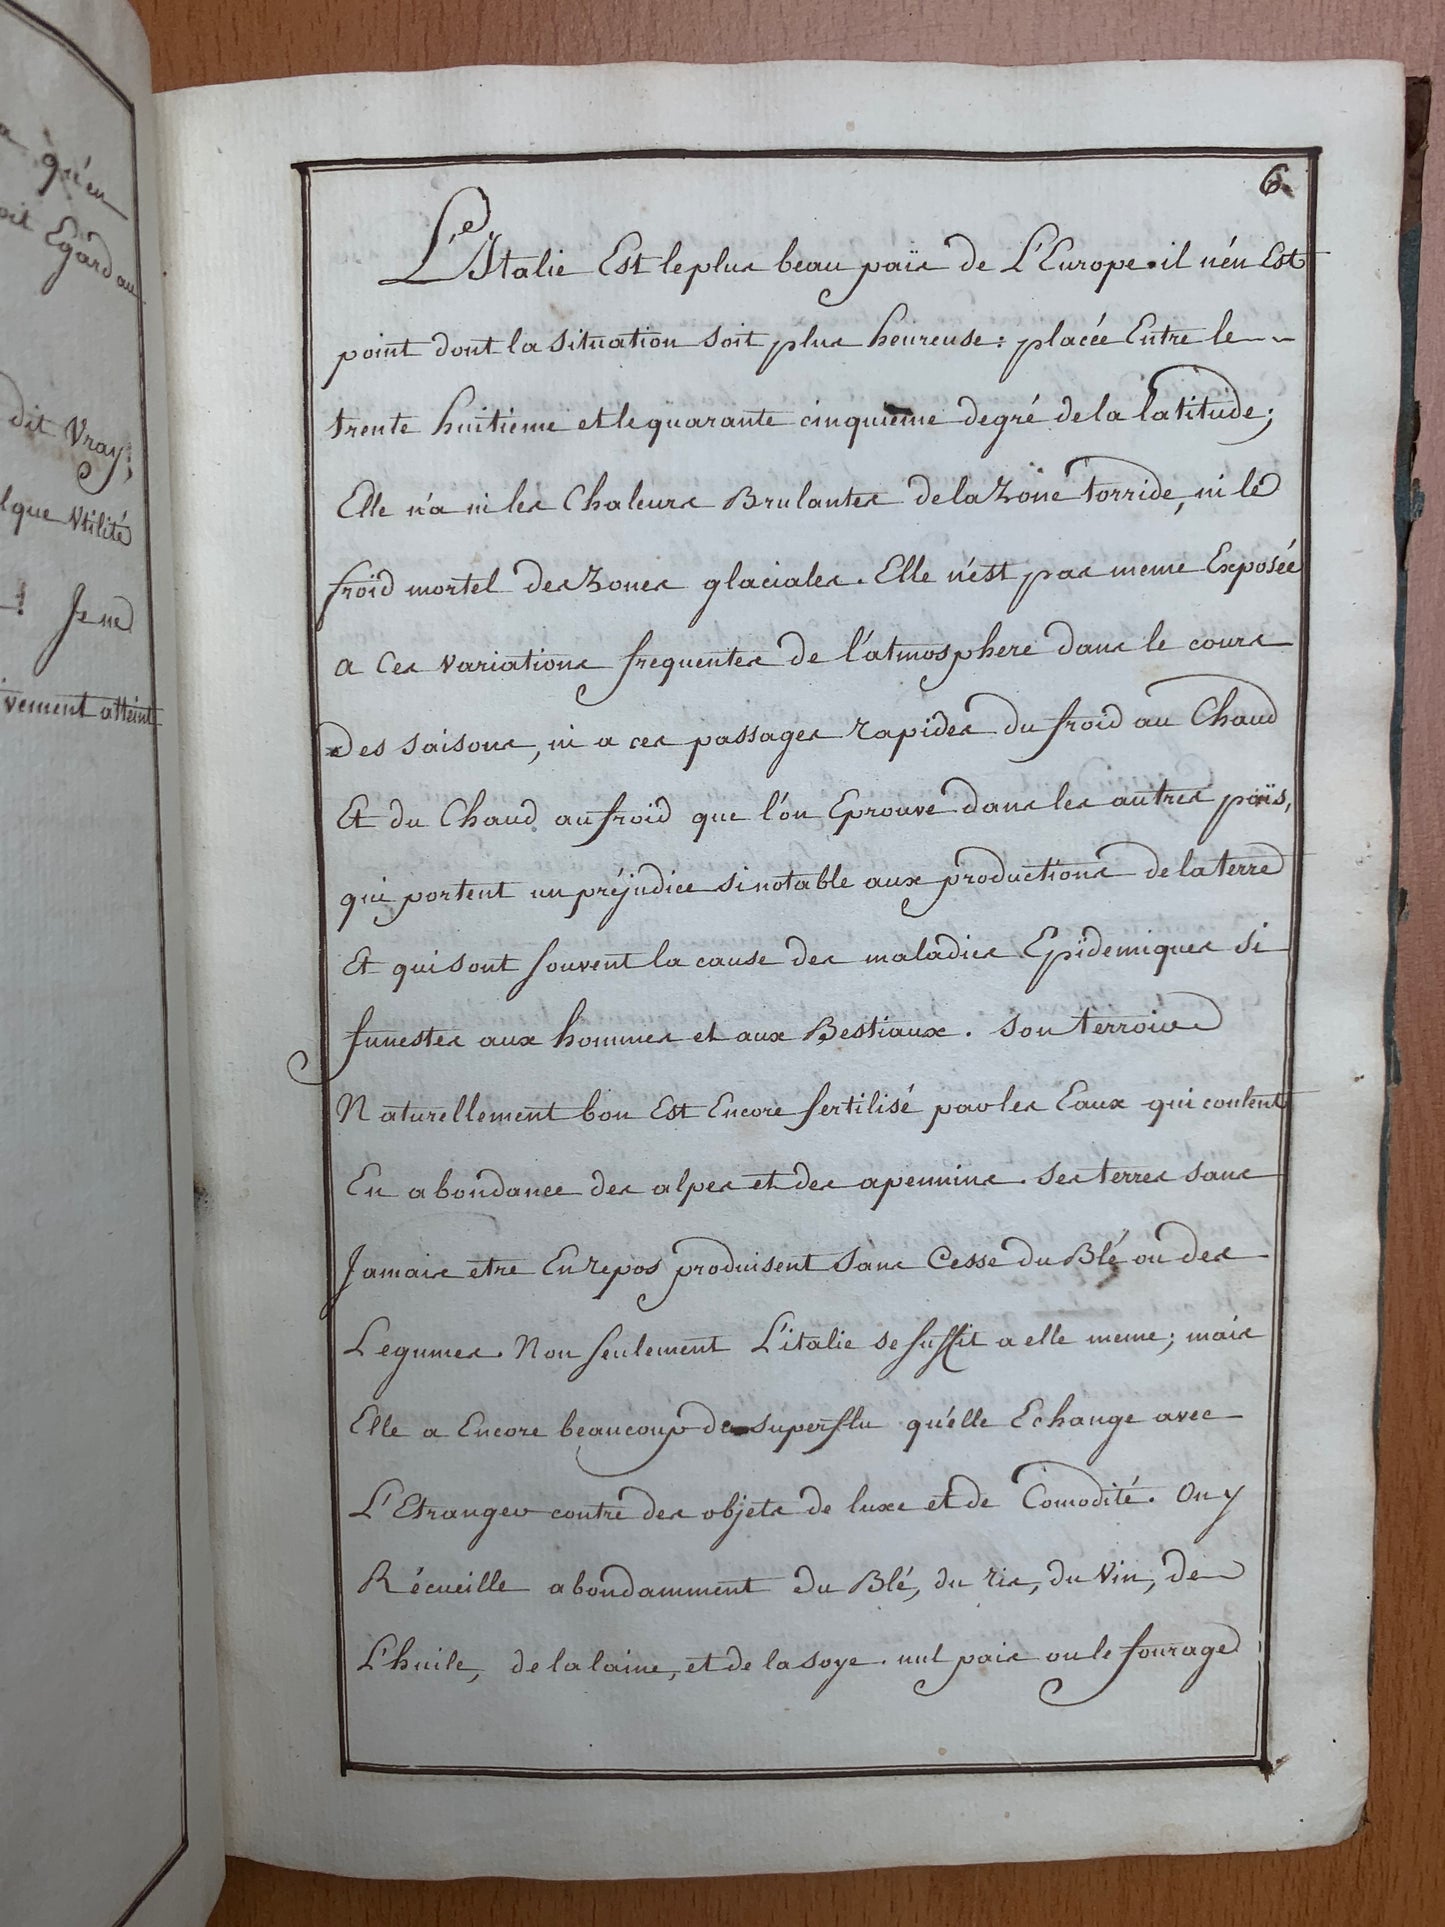 a qu'en
oit Egard au
dit Vray;
lque Utilité
! Je ne
vement atteint
6.
L'Italie Est le plus beau païs de L'Europe. il n'én Est
point dont la situation soit plus heureuse: placée Entre le
trente huitieme et le quarante cinquieme degré de la latitude;
Elle n'a ni les Chaleurs Brulantes de la Zone torride, ni le
froïd mortel des Zones glaciales. Elle n'ést pas meme Exposée
a Ces variations frequentes de l'atmosphere dans le cours
Des saisons, ni a ces passages rapides du froid au Chaud
Et du Chaud au froid que l'ón Eprouve dans les autres païs,
qui portent un préjudice si notable aux productions de la terre
Et qui sont souvent la cause des maladies Epidemiques si
funestes aux hommes et aux Bestiaux. son terroir
Naturellement bon Est Encore fertilisé par les Eaux qui coulent
En abondance des alpes et des apennins. ses terres sans
Jamais etre En repos produisent sans Cesse du Blé ou des
Legumes. Non seulement L'italie se suffit a elle meme; mais
Elle a Encore beaucoup de superflu qu'elle Echange avec
L'Etranger contre des objets de luxe et de Comodité. On y
Récueille abondamment du Blé, du ris, du Vin, de
L'huile, de la laine, et de la soye. nul païs ou le fourage